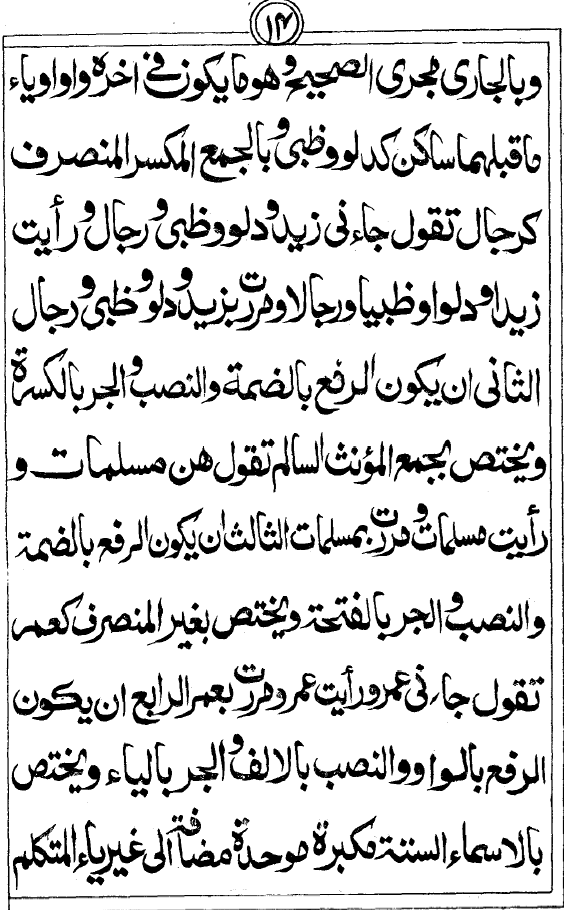 ١٤
وبالجارى مجرى الصحيح وهو ما يكون فى اخره واو اوياء
ما قبلهما ساكن كدلو وظبى وبالجمع المكسر المنصرف
كرجال تقول جاءنى زيد ودلو وظبى ورجال ورأيت
زيدا ودلوا وظبيا ورجالا ومررت بزيد ودلو وظبى ورجال
الثانى ان يكون الرفع بالضمة والنصب والجر بالكسرة
ويختص بجمع المؤنث السالم تقول هن مسلمات و
رأيت مسلمات ومررت بمسلمات الثالث ان يكون الرفع بالضمة
والنصب والجر بالفتحة ويختص بغير المنصرف كعمر
تقول جاءنى عمر ورأيت عمر ومررت بعمر الرابع ان يكون
الرفع بالواو والنصب بالالف والجر بالياء ويختص
بالاسماء الستة مكبرة موحدة مضافة الى غير ياء المتكلم